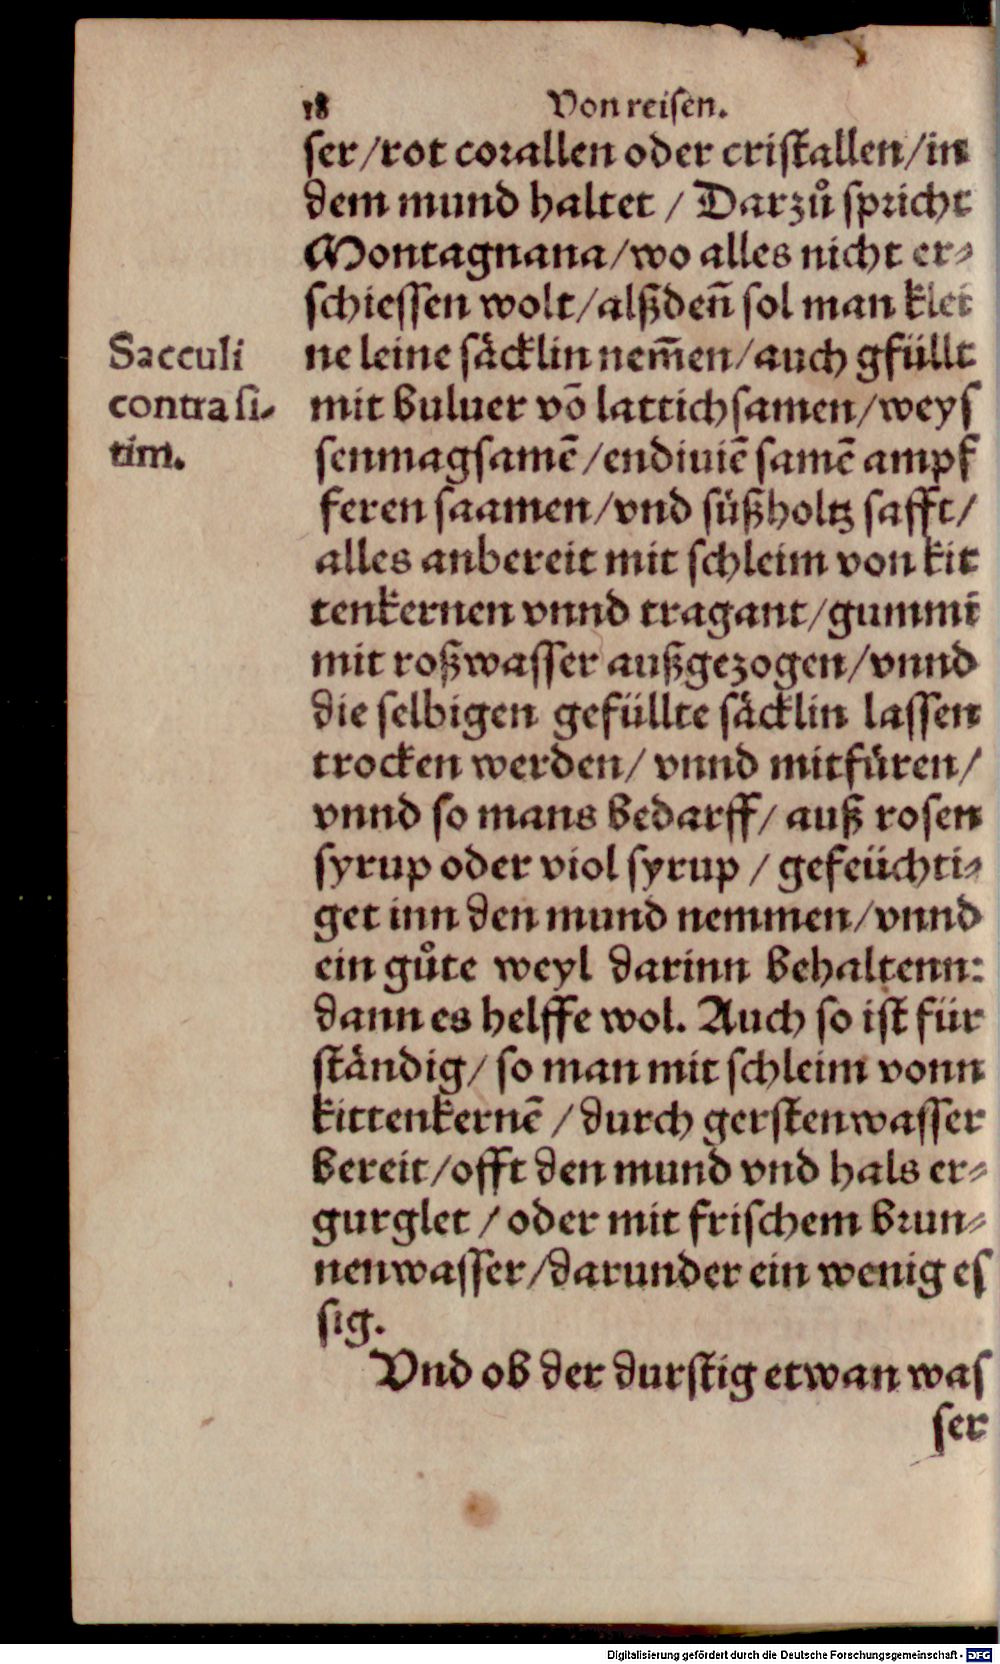 18 Von reisen.
ser/rot corallen oder cristallen/in
dem mund haltet / Darzů spricht
Montagnana/wo alles nicht er⸗
schiessen wolt/alßdeñ sol man klei
ne leine säcklin nem̃en/auch gfüllt
Sacculi
contra si⸗
tim.
mit buluer võ lattichsamen/weys
senmagsamẽ/endiuiẽ samẽ ampf
feren saamen/vnd süßholtz safft/
alles anbereit mit schleim von kit
tenkernen vnnd tragant/gummi
mit roßwasser außgezogen/vnnd
die selbigen gefüllte säcklin lassen
trocken werden/ vnnd mitfüren/
vnnd so mans bedarff/ auß rosen
syrup oder viol syrup / gefeüchti⸗
get inn den mund nemmen/vnnd
ein gůte weyl darinn behaltenn:
dann es helffe wol. Auch so ist für
ständig/ so man mit schleim vonn
kittenkernẽ / durch gerstenwasser
bereit/offt den mund vnd hals er⸗
gurglet / oder mit frischem brun⸗
nenwasser/darunder ein wenig es
sig.
Vnd ob der durstig etwan was
ser
Digitalisierung gefördert durch die Deutsche Forschungsgemeinschaft - DFG